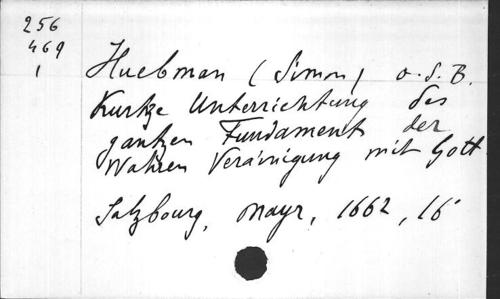 256
469
1
Huebman (Simon) o.S.B.
Kurtze Unterrichtung des
gantzen Fundaments der
Wahren Verainigung mit Gott
Salzbourg, Mayr, 1662, 16°